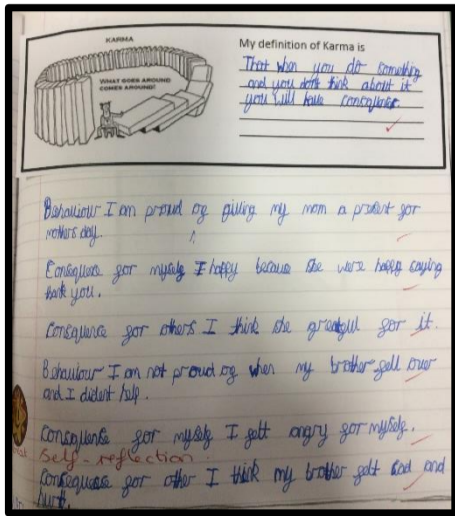 KARMA
WHAT GOES AROUND
COMES AROUND!
My definition of Karma is
That when you do something
and you dont think about it
you will have consequence
Behaviour I am proud og giving my mom a present gor
mothers day.
Consequence gor myselg I happy because she were happy saying
thank you.
Consequence gor others I think she greatgul gor it.
Behaviour I am not proud og when my brother gell over
and I dident help.
Consquense gor myselg I gelt angry gor myselg.
Self-reflection.
Consequense gor other I think my brother gelt sad and
hurt.